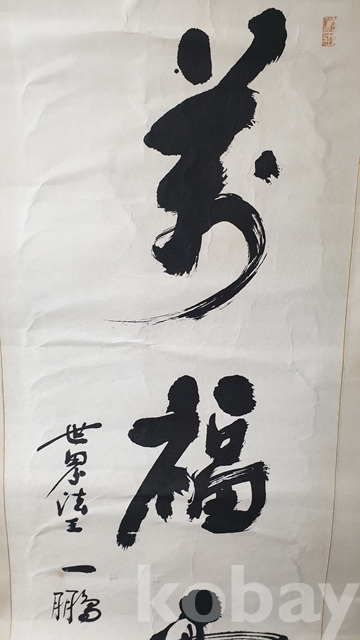 萬福
世界法王 一鵬
kobay